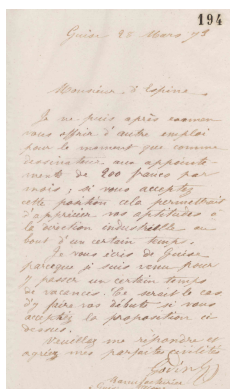 194
Guise 28 Mars 73
Monsieur d'Espine
Je ne puis après examen
vous offrir d'autre emploi
pour le moment que comme
dessinateur aux appointe-
ments de 200 francs par
mois ; si vous acceptez
cette position cela permettrait
d'apprécier vos aptitudes à
la direction industrielle au
bout d'un certain temps.
Je vous écris de Guise
parceque je suis venu pour
y passer un certain temps
de vacances. Ce serait le cas
d'y faire vos débuts si vous
acceptez la proposition ci
dessus.
Veuillez me répondre et
agréer mes parfaites civilités
Godin